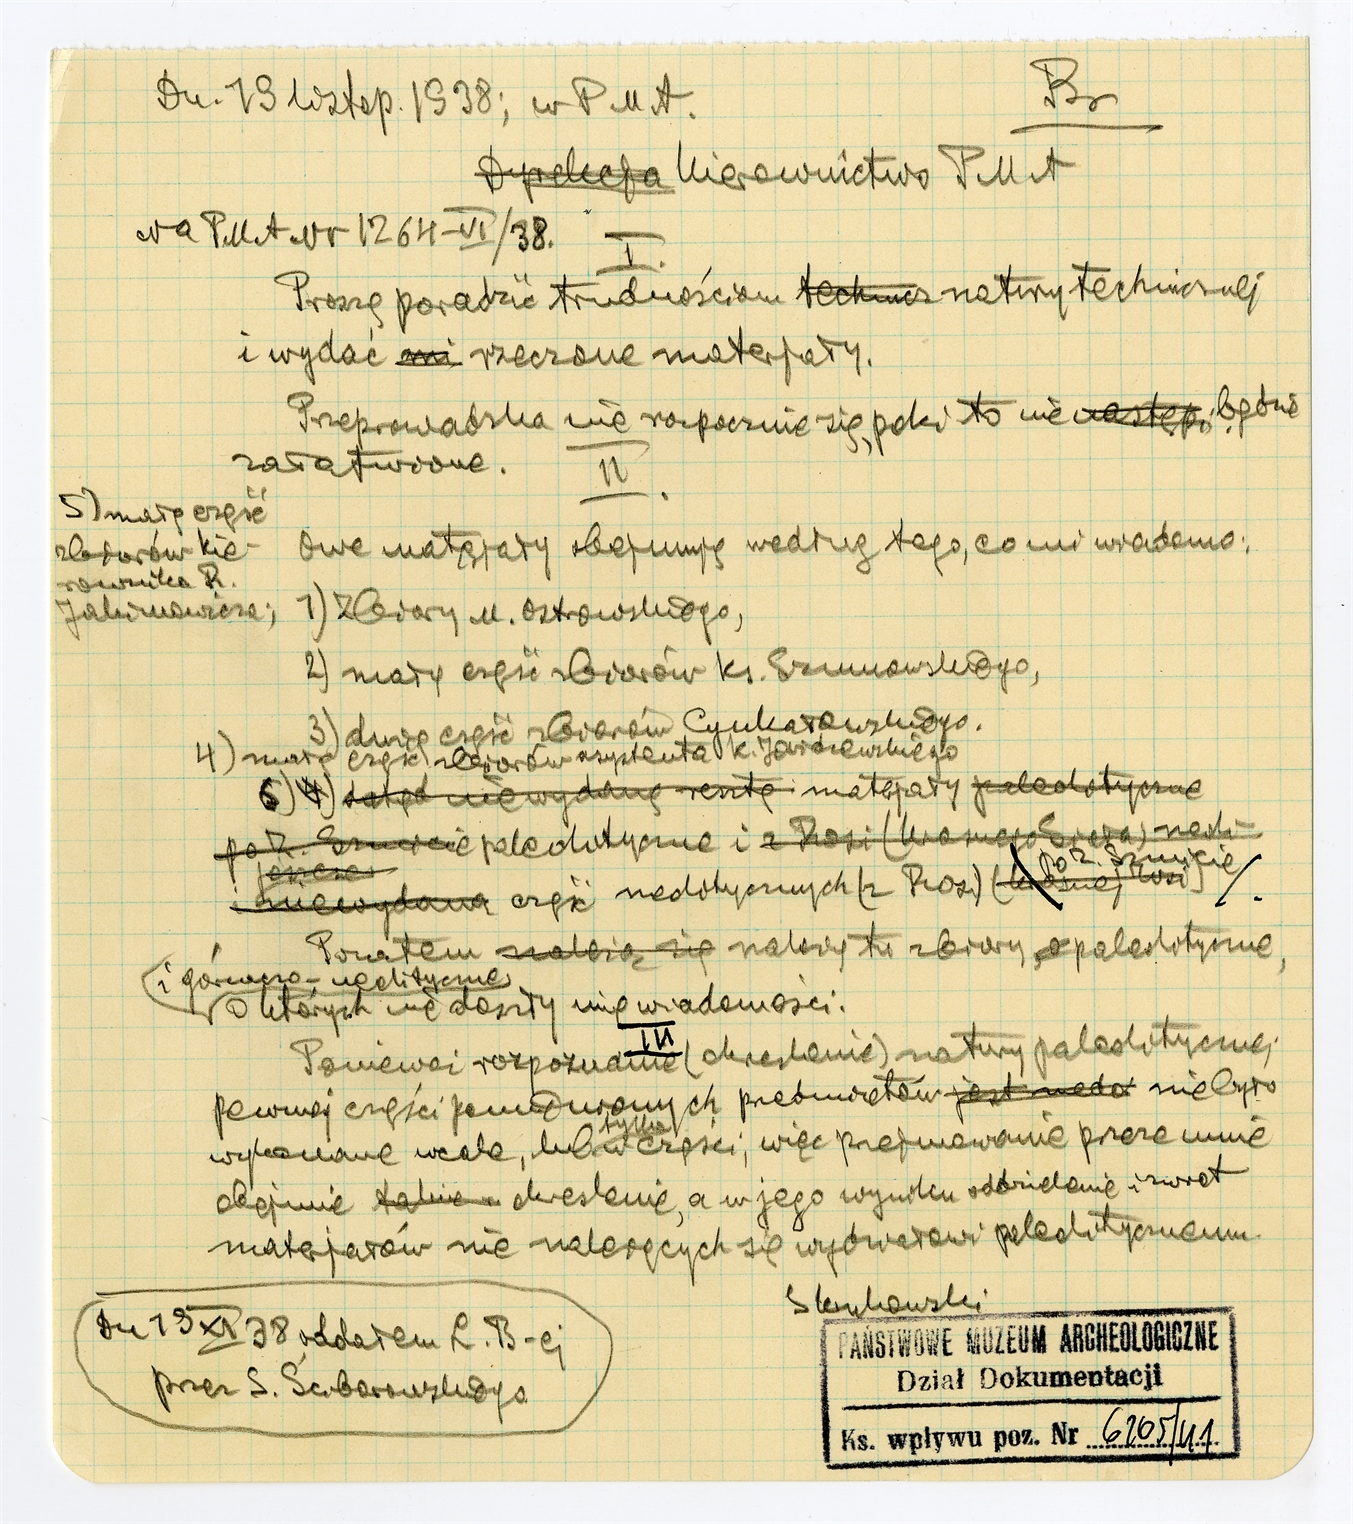 Dn. 19 listop. 1938; w P M A.
Br
Dyrekcja Kierownictwo PMA
na PMA Nr 1264-VI/38.
I.
Proszę poradzić trudnościom technicz natury technicznej
i wydać mi rzeczone materjały.
Przeprowadzka nie rozpocznie się, póki to nie nastąpi będzie
załatwione.
II.
Owe materjały obejmują według tego, co mi wiadomo:
1) Zbiory M. Ostrowskiego,
2) małą część zbiorów ks. Szumowskiego,
3) dużą część zbiorów Cynkałowskiego.
4) małą część zbiorów asystenta K. Jarosewskiego
5) małą część
zbiorów kie-
rownika R.
Jakimowicza;
6) 4) niewydaną resztę i materjały paleolityczne
po Z. Szmicie paleolityczne i z Rosi (Krasnego Sioła) neoli-
i niewydana część neolitycznych (z Rosi) (po Z. Szmicie)
Pozatem należą się należą tu zbiory paleolityczne,
i górniczo-neolityczne
o których nie doszły mię wiadomości.
III
Ponieważ rozpoznanie (określenie) natury paleolitycznej
pewnej części przedmiotów jest nie było
wykonane wcale, lub tylko w części, więc przejmowanie przeze mnie
obejmie takie określenie, a w jego wyniku oddzielenie i zwrot
materjałów nie należących się wydziałowi paleolitycznemu.
Skrukowski
Dn 19 XI 38 oddałem L. B-ej
przez S. Ściborowskiego
PAŃSTWOWE MUZEUM ARCHEOLOGICZNE
Dział Dokumentacji
Ks. wpływu poz. Nr 6205/41